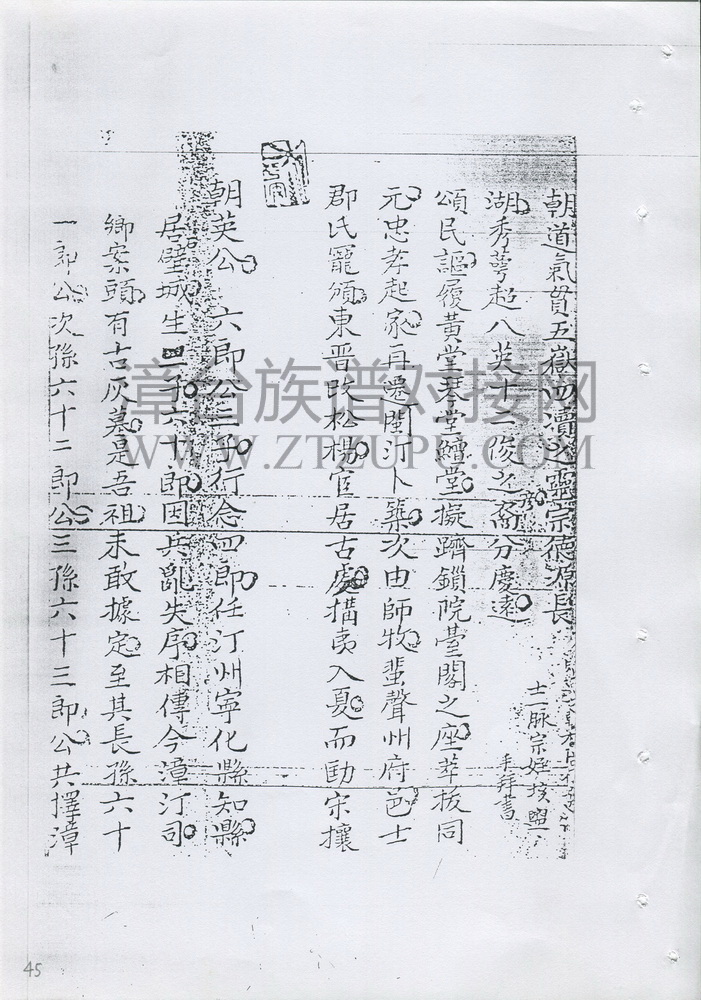 朝道氣貫五嶽四瀆之靈宗德源長
湖秀萼起八英十二俊之裔分慶遠
頌民謳履黃堂琴堂鱣堂擬躋鎖院臺閣之座萃拔同
元忠孝起家再遷閩汀卜築次由師牧蜚聲州府邑士
郡氏寵頒東晋改松楊官居古處搆夷入夏而勛宋攘
朝英公六郎公三子行念四郎任汀州寧化縣知縣
居璧城生二子六十郎因兵亂失序相傳今漳汀司
鄉案頭有古灰墓是吾祖未敢據定至其長孫六十
一郎公次孫六十二郎公三孫六十三郎公共擇漳
脉宗姪
手拜書
章台族谱对接网
WWW.ZTZUPU.COM
45